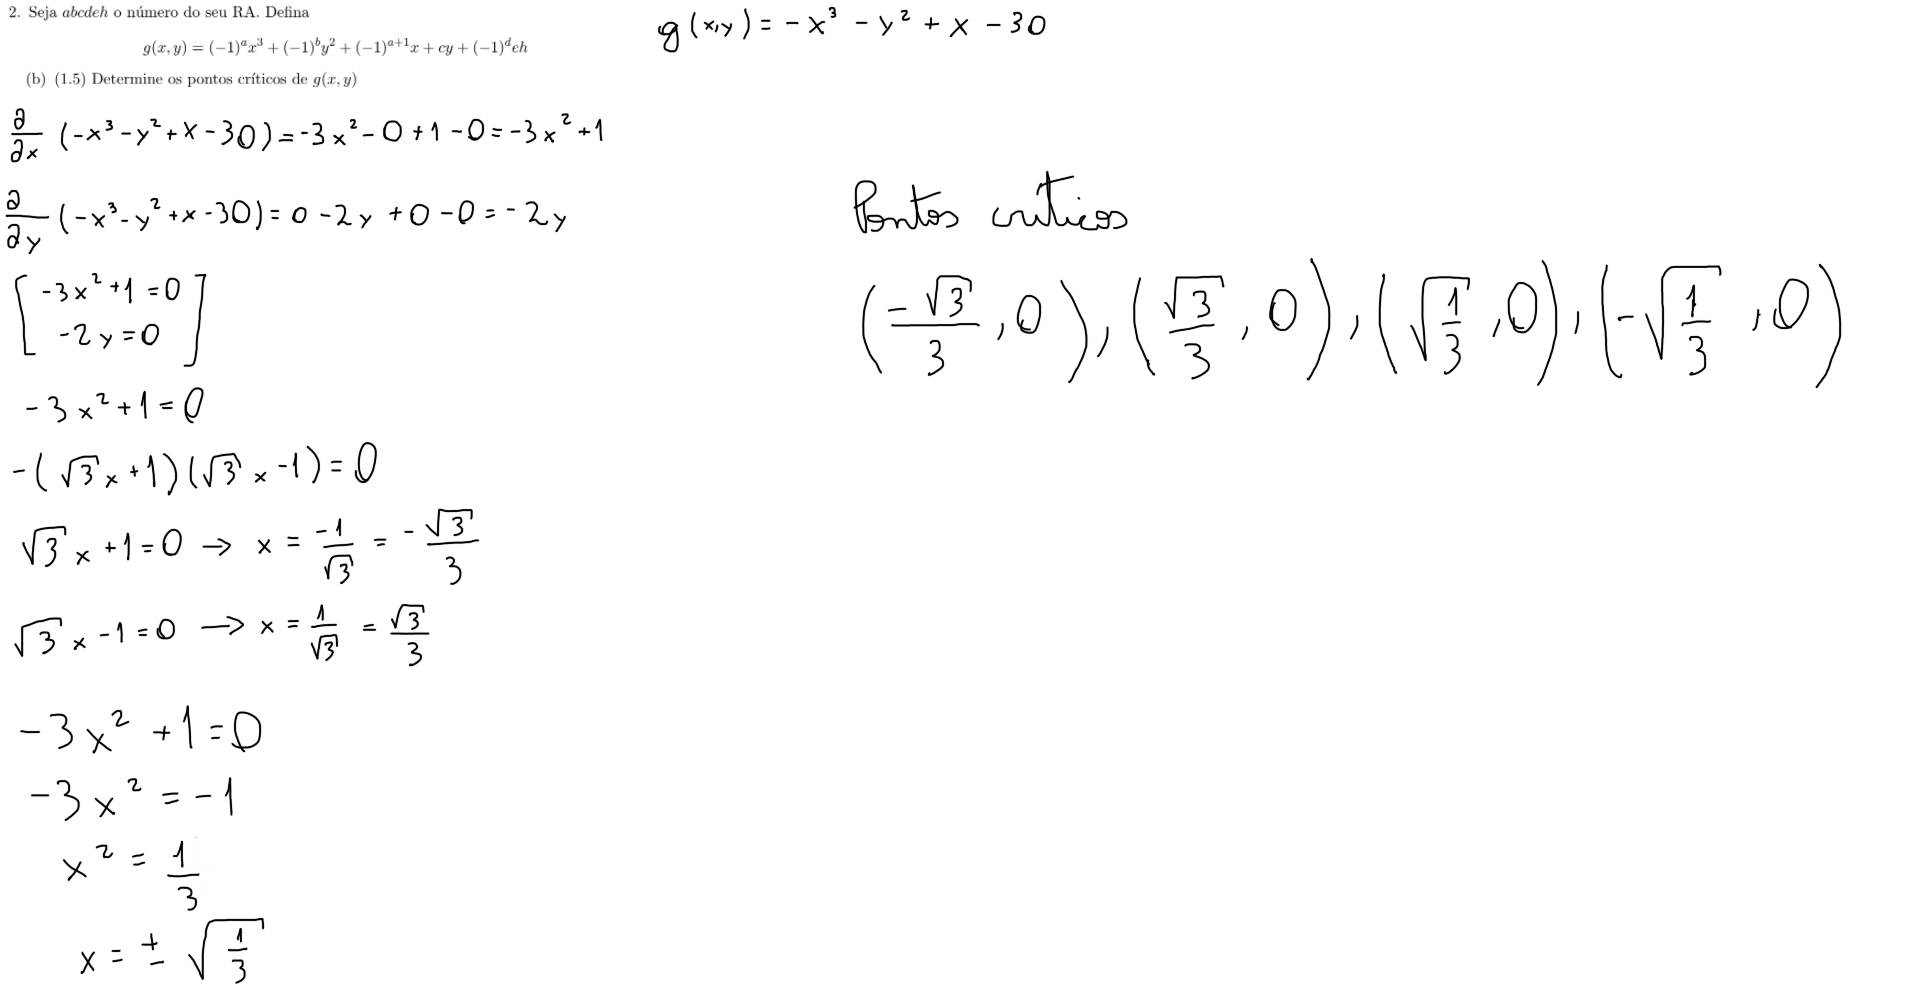 2. Seja abcdeh o número do seu RA. Defina
g(x, y) = (−1)^a x³ + (−1)^b y² + (−1)^{a+1} x + cy + (−1)^d eh
(b) (1.5) Determine os pontos críticos de g(x, y)
g(x,y) = -x³ - y² + x - 30
∂/∂x (-x³-y²+x-30) = -3x² - 0 + 1 - 0 = -3x² + 1
∂/∂y (-x³-y²+x-30) = 0 - 2y + 0 - 0 = -2y
[ -3x² + 1 = 0
-2y = 0 ]
-3x² + 1 = 0
-(√3 x + 1)(√3 x - 1) = 0
√3 x + 1 = 0 → x = -1/√3 = -√3/3
√3 x - 1 = 0 → x = 1/√3 = √3/3
-3x² + 1 = 0
-3x² = -1
x² = 1/3
x = ± √(1/3)
Pontos críticos
(-√3/3, 0), (√3/3, 0), (√(1/3), 0), (-√(1/3), 0)